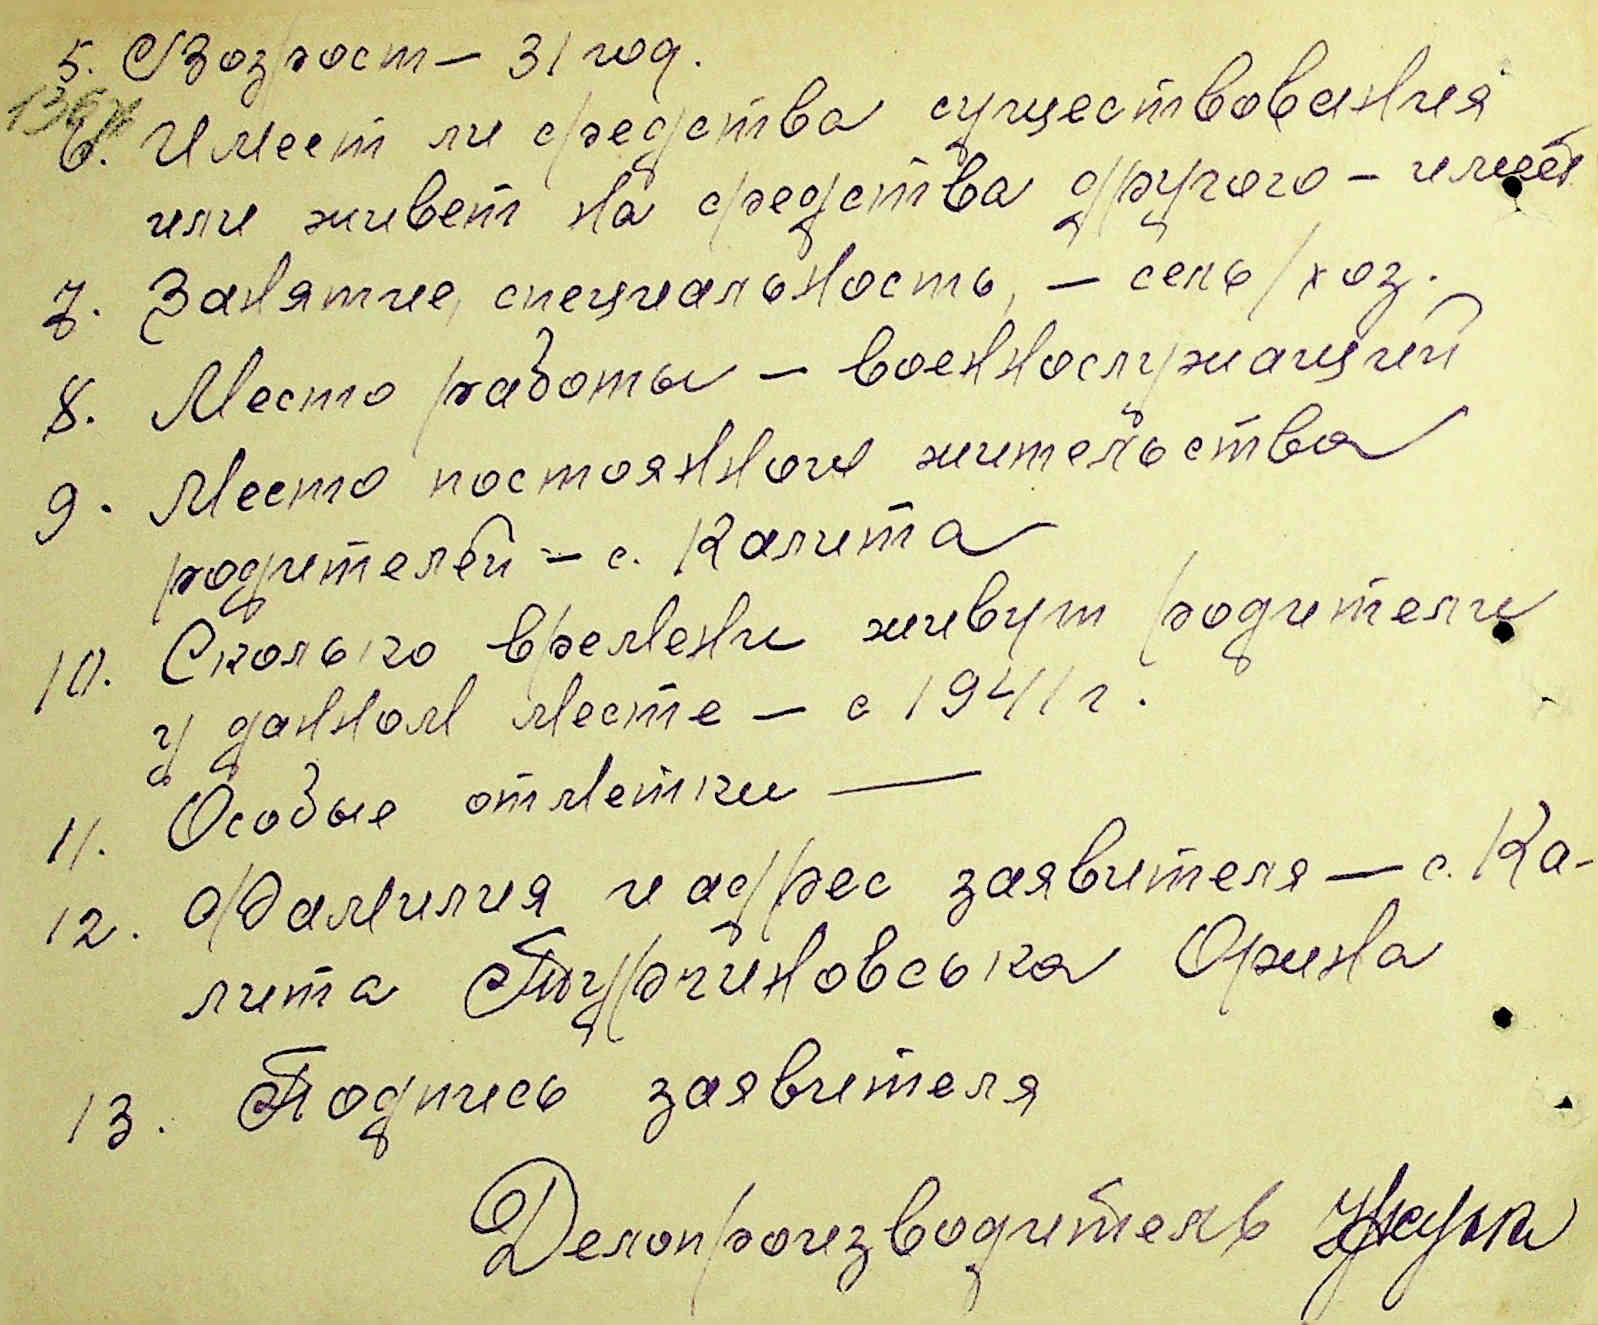 5. Возрост – 31 год.
6. Имеет ли средства существования
или живет на средства другого – имеет
7. Занятие, специальность, – сель/хоз.
8. Место работы – военнослужащий
9. Место постоянного жительства
родителей – с. Калита
10. Сколько времени живут родители
у данном месте – с 1941 г.
11. Особые отметки —
12. Фамилия и адрес заявителя – с. Ка-
лита Турчиновська Орина
13. Подпись заявителя
Делопроизводитель